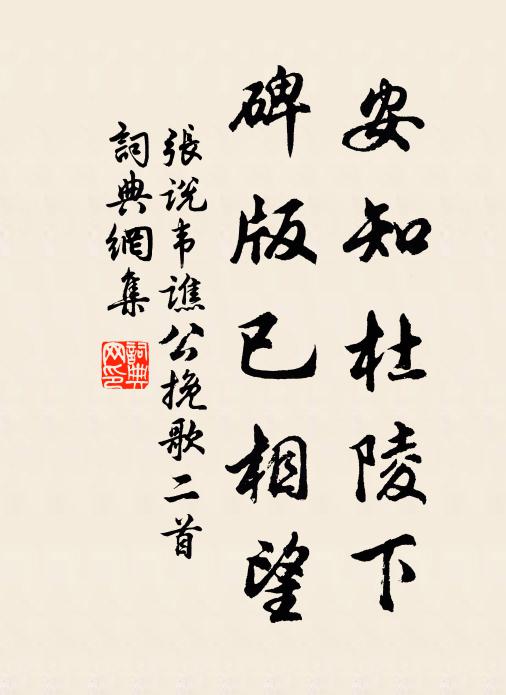 安知杜陵下
碑版已相望
張说韦譙公挽歌二首
詞典網集
詞典网印